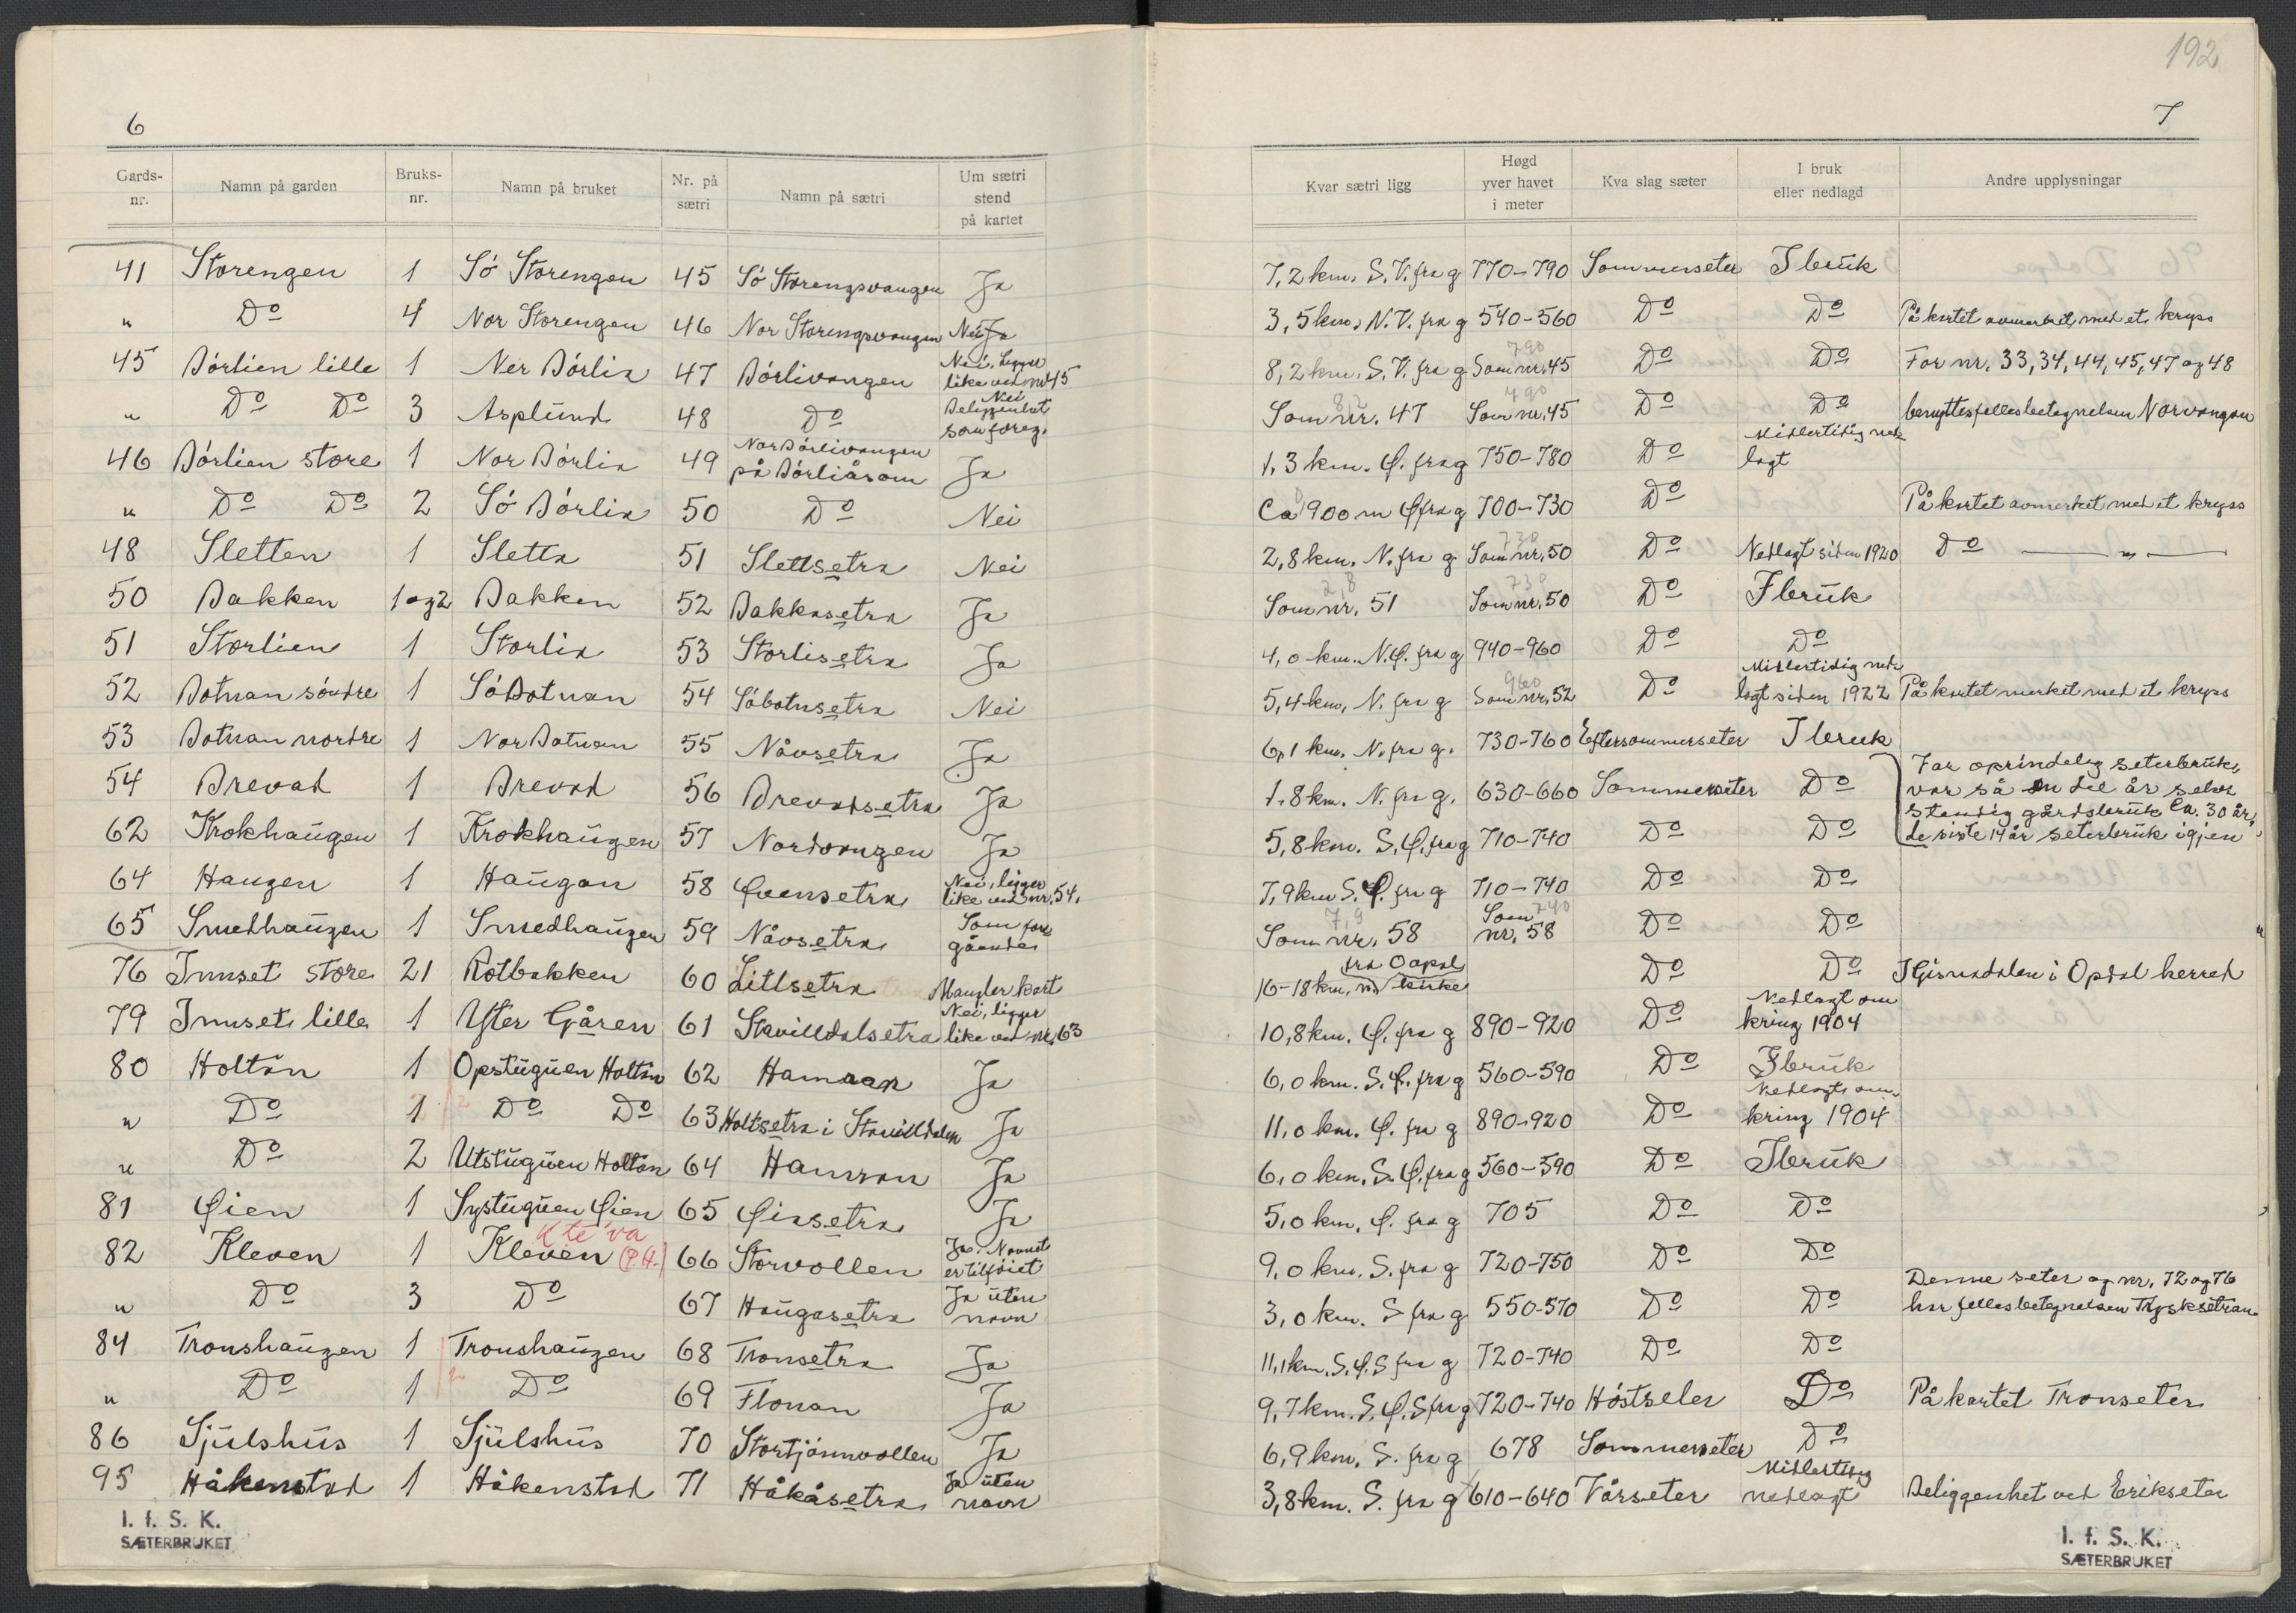 192
6
7
Gards-nr. Namn på garden Bruks-nr. Namn på bruket Nr. på sætri Namn på sætri Um sætri stend på kartet Kvar sætri ligg Høgd yver havet i meter Kva slag sæter I bruk eller nedlagd Andre upplysningar
41 Storengen 1 Sö Storengen 45 Sö Storengsvangen Ja 7,2 km. S.V. fra g 770-790 Sommerseter I bruk
" Do 4 Nor Storengen 46 Nor Storengsvangen Nei Ja 3,5 km. N.V. fra g 540-560 Do Do På kartet avmerket med et kryss
45 Börlien lille 1 Ner Börlia 47 Börlivangen Nei. Ligger like ved nr 45 8,2 km. S.V. fra g Som nr. 45 790 Do Do For nr. 33, 34, 44, 45, 47 og 48
" Do Do 3 Asplund 48 Do Nei Beliggenhet som foreg. Som nr. 47 8,2 Som nr. 45 790 Do Do benyttes fellesbetegnelsen Norvangan
46 Börlien store 1 Nor Börlia 49 Nor Börlivangen på Börliåsom Ja 1,3 km. Ø. fra g 750-780 Do Midlertidig nedlagt
" Do Do 2 Sö Börlia 50 Do Nei Ca 900 m Ø fra g 700-730 Do På kartet avmerket med et kryss
48 Sletten 1 Sletta 51 Slettsetra Nei 2,8 km. N. fra g Som nr. 50 730 Do Nedlagt siden 1920 Do — " —
50 Bakken 1 og 2 Bakken 52 Bakkasetra Ja Som nr. 51 2,8 Som nr. 50 730 Do I bruk
51 Storlien 1 Storlia 53 Storlisetra Ja 4,0 km. N.Ø. fra g 940-960 Do Do
52 Botnan söndre 1 Sö Botnan 54 Söbotnsetra Nei 5,4 km. N. fra g Som nr. 52 960 Do Midlertidig nedlagt siden 1922 På kartet merket med et kryss
53 Botnan nordre 1 Nor Botnan 55 Nåvsetra Ja 6,1 km. N. fra g. 730-760 Eftersommerseter I bruk
54 Brevad 1 Brevad 56 Brevadsetra Ja 1,8 km. N. fra g. 630-660 Sommerseter Do Var oprindelig seterbruk, var så en del år selvstendig gårdsbruk Ca. 30 år, de siste 14 år seterbruk igjen
62 Krokhaugen 1 Krokhaugen 57 Nordvangen Ja 5,8 km. S.Ø. fra g 710-740 Do Do
64 Haugen 1 Haugan 58 Øvensetra Nei, ligger like ved nr. 54. 7,9 km S.Ø. fra g 710-740 Do Do
65 Smedhaugen 1 Smedhaugen 59 Nåvsetra Som foregåendes Som nr. 58 7,9 Som nr. 58 740 Do Do
76 Innset store 21 Rotbakken 60 Litlsetra Mangler kart 16-18 km. fra Opdal kirke Do Do I Gisnadalen i Opdal herred
79 Innset lille 1 Yster Gåren 61 Stavilldalsetra Nei, ligger like ved nr. 63 10,8 km. Ø. fra g 890-920 Do Nedlagt omkring 1904
80 Holtån 1 Opstuguen Holtån 62 Hamran Ja 6,0 km. S.Ø. fra g 560-590 Do I bruk
" Do 1 2 Do Do 63 Holtsetra i Stavilldalen Ja 11,0 km. Ø. fra g 890-920 Do Nedlagt omkring 1904
" Do 2 Utstuguen Holtån 64 Hamran Ja 6,0 km. S.Ø. fra g 560-590 Do I bruk
81 Øien 1 Systuguen Øien 65 Øiasetra Ja 5,0 km. Ø. fra g 705 Do Do
82 Kleven 1 Kleven (P.H.) 66 Storvollen Ja. Navnet er tilföiet 9,0 km. S. fra g 720-750 Do Do
" Do 3 Do 67 Haugasetra Ja uten navn 3,0 km. S fra g 550-570 Do Do Denne seter og nr. 72 og 76 har fellesbetegnelsen Trysksetran
84 Tronshaugen 1 Tronshaugen 68 Tronsetra Ja 11,1 km. S.Ø.S fra g 720-740 Do Do
" Do 1 2 Do 69 Flonan Ja 9,7 km. S.Ø.S fra g 720-740 Höstseter Do På kartet Tronseter
86 Sjulshus 1 Sjulshus 70 Stortjönnvollen Ja 6,9 km. S. fra g 678 Sommerseter Do
95 Håkenstad 1 Håkenstad 71 Håkåsetra Ja uten navn 3,8 km. S. fra g 610-640 Vårseter Midlertidig nedlagt Beliggenhet ved Erikseter
I. f. S. K.
SÆTERBRUKET
I. f. S. K.
SÆTERBRUKET